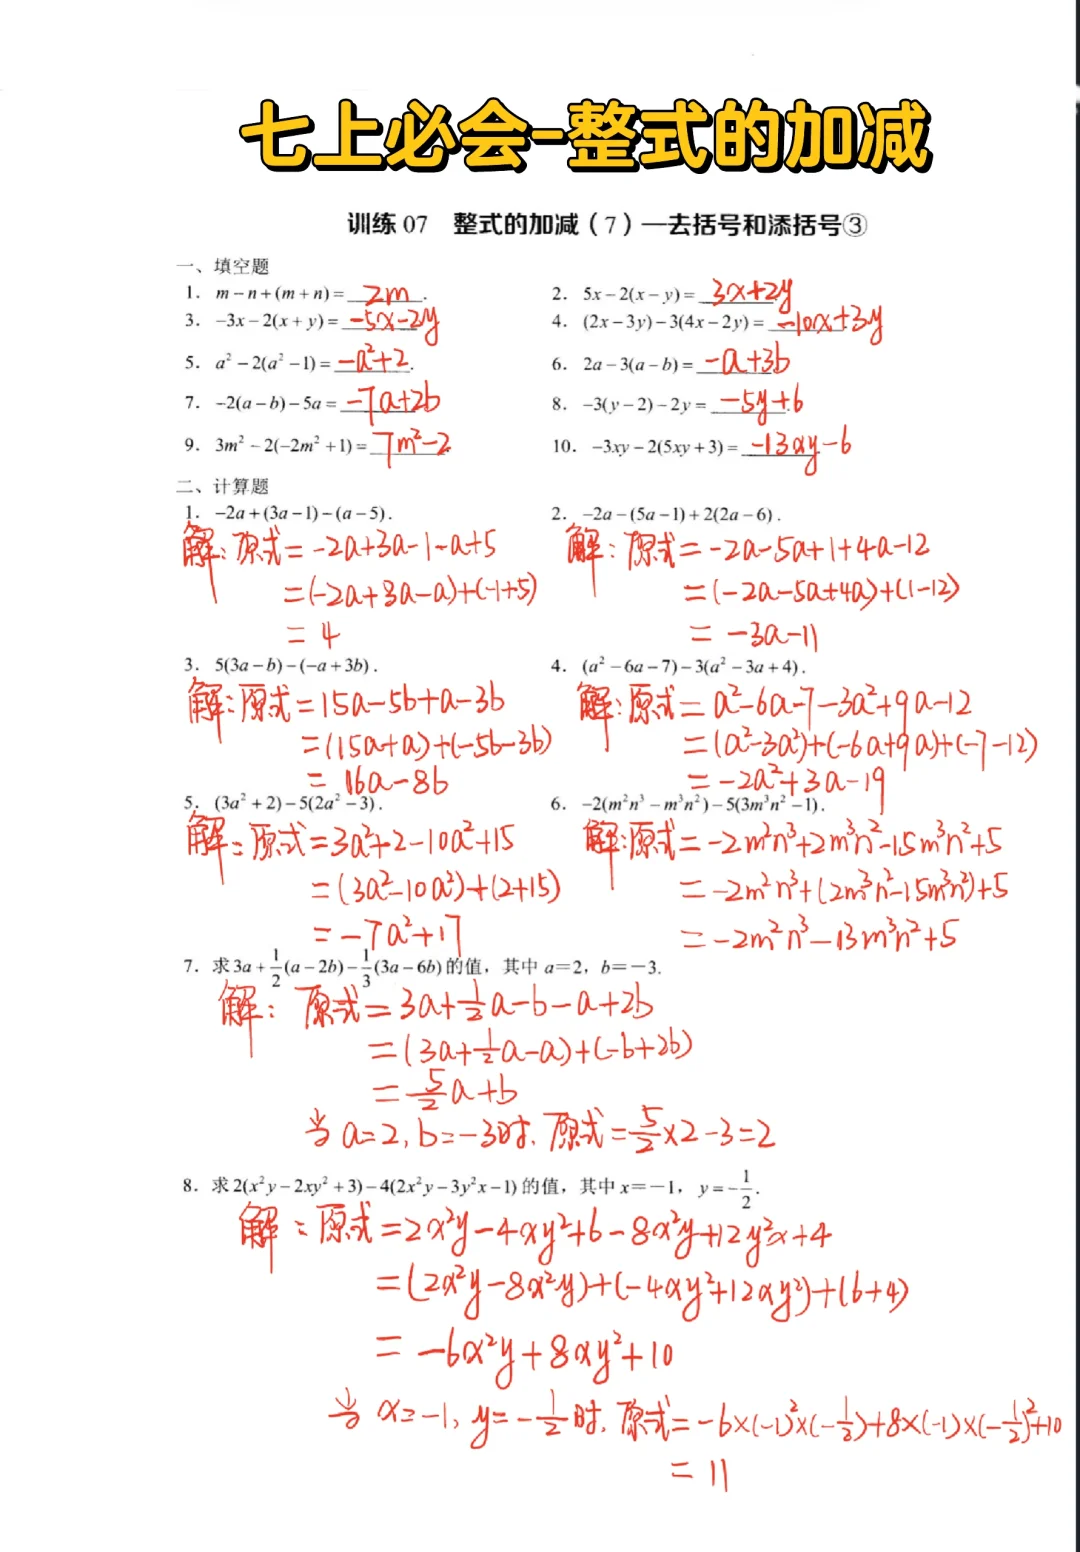 七上必会-整式的加减
训练 07　整式的加减（7）—去括号和添括号③
一、填空题
1. m－n＋(m＋n)＝ 2m .
2. 5x－2(x－y)＝ 3x+2y
3. －3x－2(x＋y)＝ -5x-2y
4. (2x－3y)－3(4x－2y)＝ -10x+3y
5. a²－2(a²－1)＝ -a²+2 .
6. 2a－3(a－b)＝ -a+3b
7. －2(a－b)－5a＝ -7a+2b
8. －3(y－2)－2y＝ -5y+6
9. 3m²－2(－2m²＋1)＝ 7m²-2
10. －3xy－2(5xy＋3)＝ -13xy-6
二、计算题
1. －2a＋(3a－1)－(a－5).
解:原式=-2a+3a-1-a+5
=(-2a+3a-a)+(-1+5)
=4
2. －2a－(5a－1)＋2(2a－6).
解:原式=-2a-5a+1+4a-12
=(-2a-5a+4a)+(1-12)
=-3a-11
3. 5(3a－b)－(－a＋3b).
解:原式=15a-5b+a-3b
=(15a+a)+(-5b-3b)
=16a-8b
4. (a²－6a－7)－3(a²－3a＋4).
解:原式=a²-6a-7-3a²+9a-12
=(a²-3a²)+(-6a+9a)+(-7-12)
=-2a²+3a-19
5. (3a²＋2)－5(2a²－3).
解:原式=3a²+2-10a²+15
=(3a²-10a²)+(2+15)
=-7a²+17
6. －2(m²n³－m³n²)－5(3m³n²－1).
解:原式=-2m²n³+2m³n²-15m³n²+5
=-2m²n³+(2m³n²-15m³n²)+5
=-2m²n³-13m³n²+5
7. 求3a＋1/2(a－2b)－1/3(3a－6b)的值，其中 a＝2，b＝－3.
解:原式=3a+1/2a-b-a+2b
=(3a+1/2a-a)+(-b+2b)
=5/2a+b
当a=2,b=-3时,原式=5/2×2-3=2
8. 求2(x²y－2xy²＋3)－4(2x²y－3y²x－1)的值，其中x＝－1，y＝－1/2.
解:原式=2x²y-4xy²+6-8x²y+12y²x+4
=(2x²y-8x²y)+(-4xy²+12xy²)+(6+4)
=-6x²y+8xy²+10
当x=-1,y=-1/2时,原式=-6×(-1)²×(-1/2)+8×(-1)×(-1/2)²+10
=11